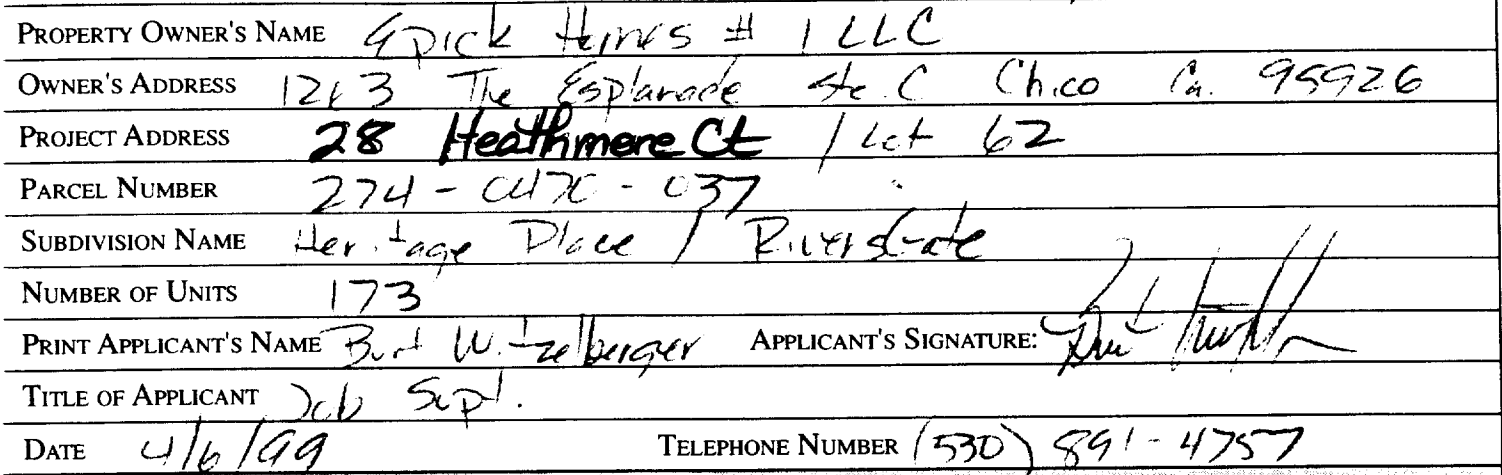 PROPERTY OWNER'S NAME Epick Homes # 1 LLC
OWNER'S ADDRESS 1263 The Esplanade Ste. C Chico Ca. 95926
PROJECT ADDRESS 28 Heathmere Ct / Lot 62
PARCEL NUMBER 274-0470-037
SUBDIVISION NAME Heritage Place / RiversGate
NUMBER OF UNITS 173
PRINT APPLICANT'S NAME Burt Witzelberger APPLICANT'S SIGNATURE:
TITLE OF APPLICANT Job Supt.
DATE 4/6/99 TELEPHONE NUMBER (530) 891-4757